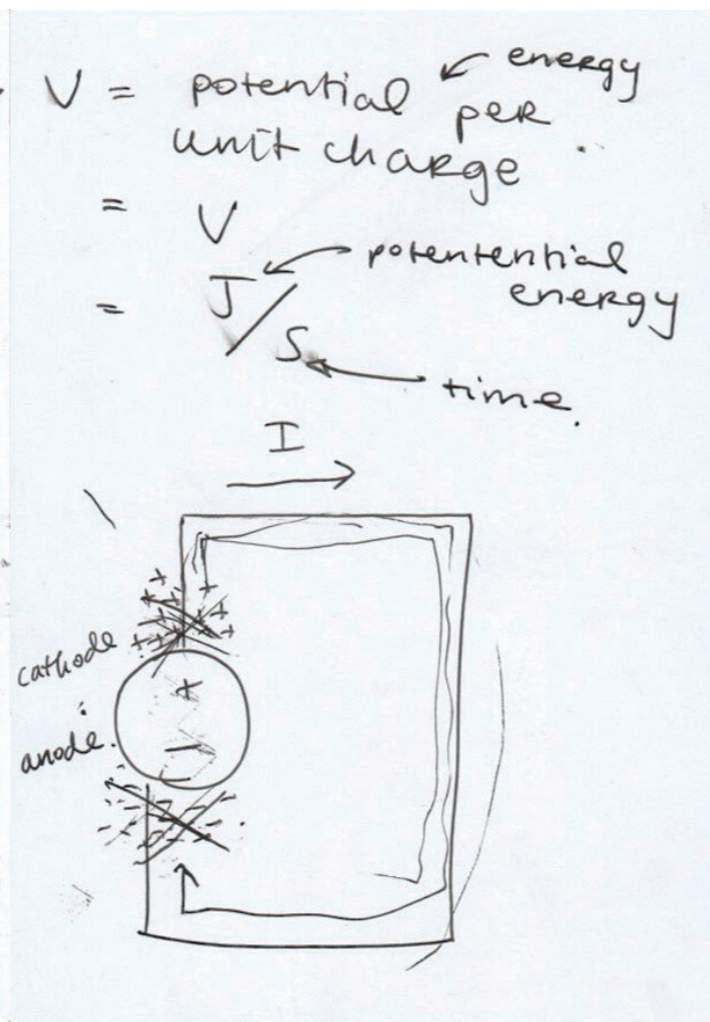 V = potential energy
per
unit charge.
= V
= J/S potentential
energy
time.
I
+
cathode
+
anode.
-